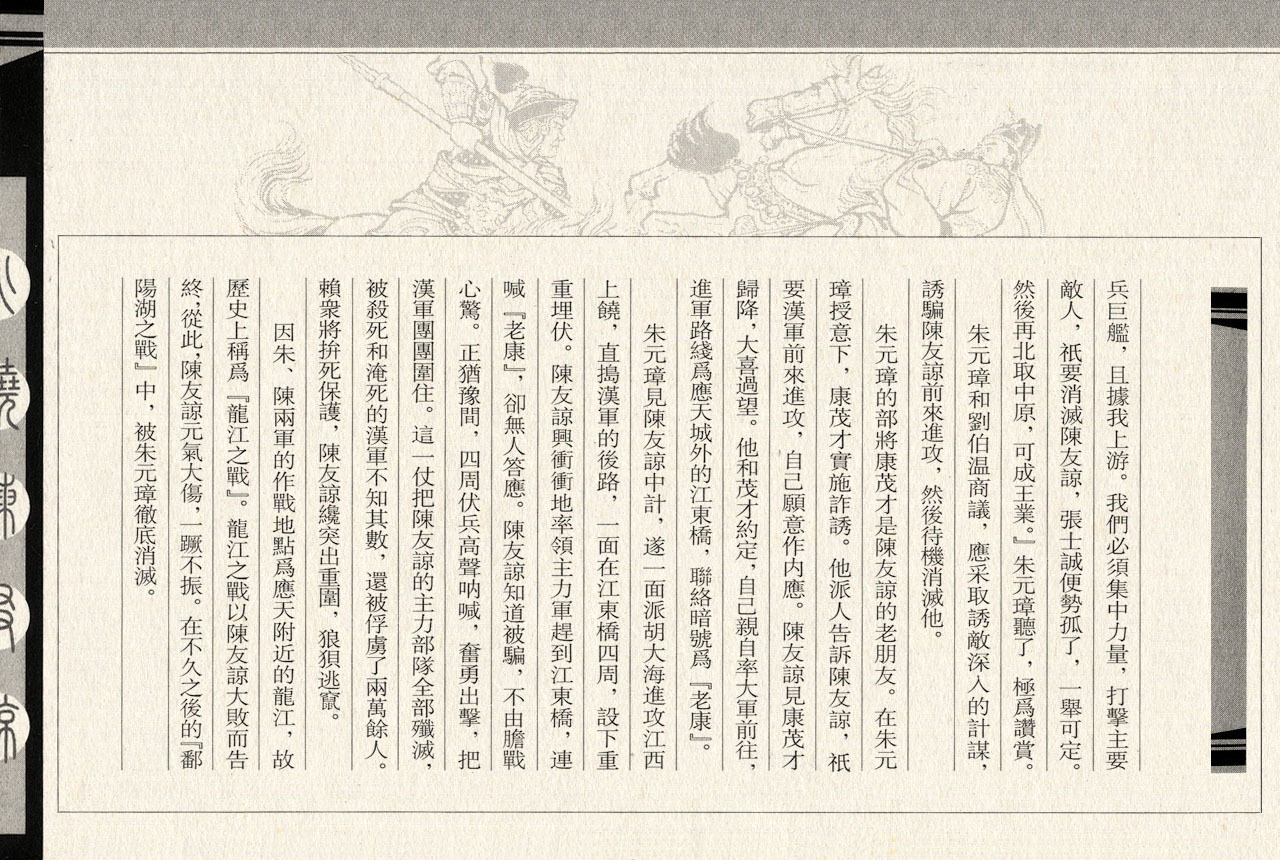 兵巨艦，且據我上游。我們必須集中力量，打擊主要
敵人，祇要消滅陳友諒，張士誠便勢孤了，一舉可定。
然後再北取中原，可成王業。』朱元璋聽了，極爲讚賞。
朱元璋和劉伯温商議，應采取誘敵深入的計謀，
誘騙陳友諒前來進攻，然後待機消滅他。
朱元璋的部將康茂才是陳友諒的老朋友。在朱元
璋授意下，康茂才實施詐誘。他派人告訴陳友諒，祇
要漢軍前來進攻，自己願意作内應。陳友諒見康茂才
歸降，大喜過望。他和茂才約定，自己親自率大軍前往，
進軍路綫爲應天城外的江東橋，聯絡暗號爲『老康』。
朱元璋見陳友諒中計，遂一面派胡大海進攻江西
上饒，直搗漢軍的後路，一面在江東橋四周，設下重
重埋伏。陳友諒興衝衝地率領主力軍趕到江東橋，連
喊『老康』，卻無人答應。陳友諒知道被騙，不由膽戰
心驚。正猶豫間，四周伏兵高聲吶喊，奮勇出擊，把
漢軍團團圍住。這一仗把陳友諒的主力部隊全部殲滅，
被殺死和淹死的漢軍不知其數，還被俘虜了兩萬餘人。
賴衆將拚死保護，陳友諒纔突出重圍，狼狽逃竄。
因朱、陳兩軍的作戰地點爲應天附近的龍江，故
歷史上稱爲『龍江之戰』。龍江之戰以陳友諒大敗而告
終，從此，陳友諒元氣大傷，一蹶不振。在不久之後的『鄱
陽湖之戰』中，被朱元璋徹底消滅。